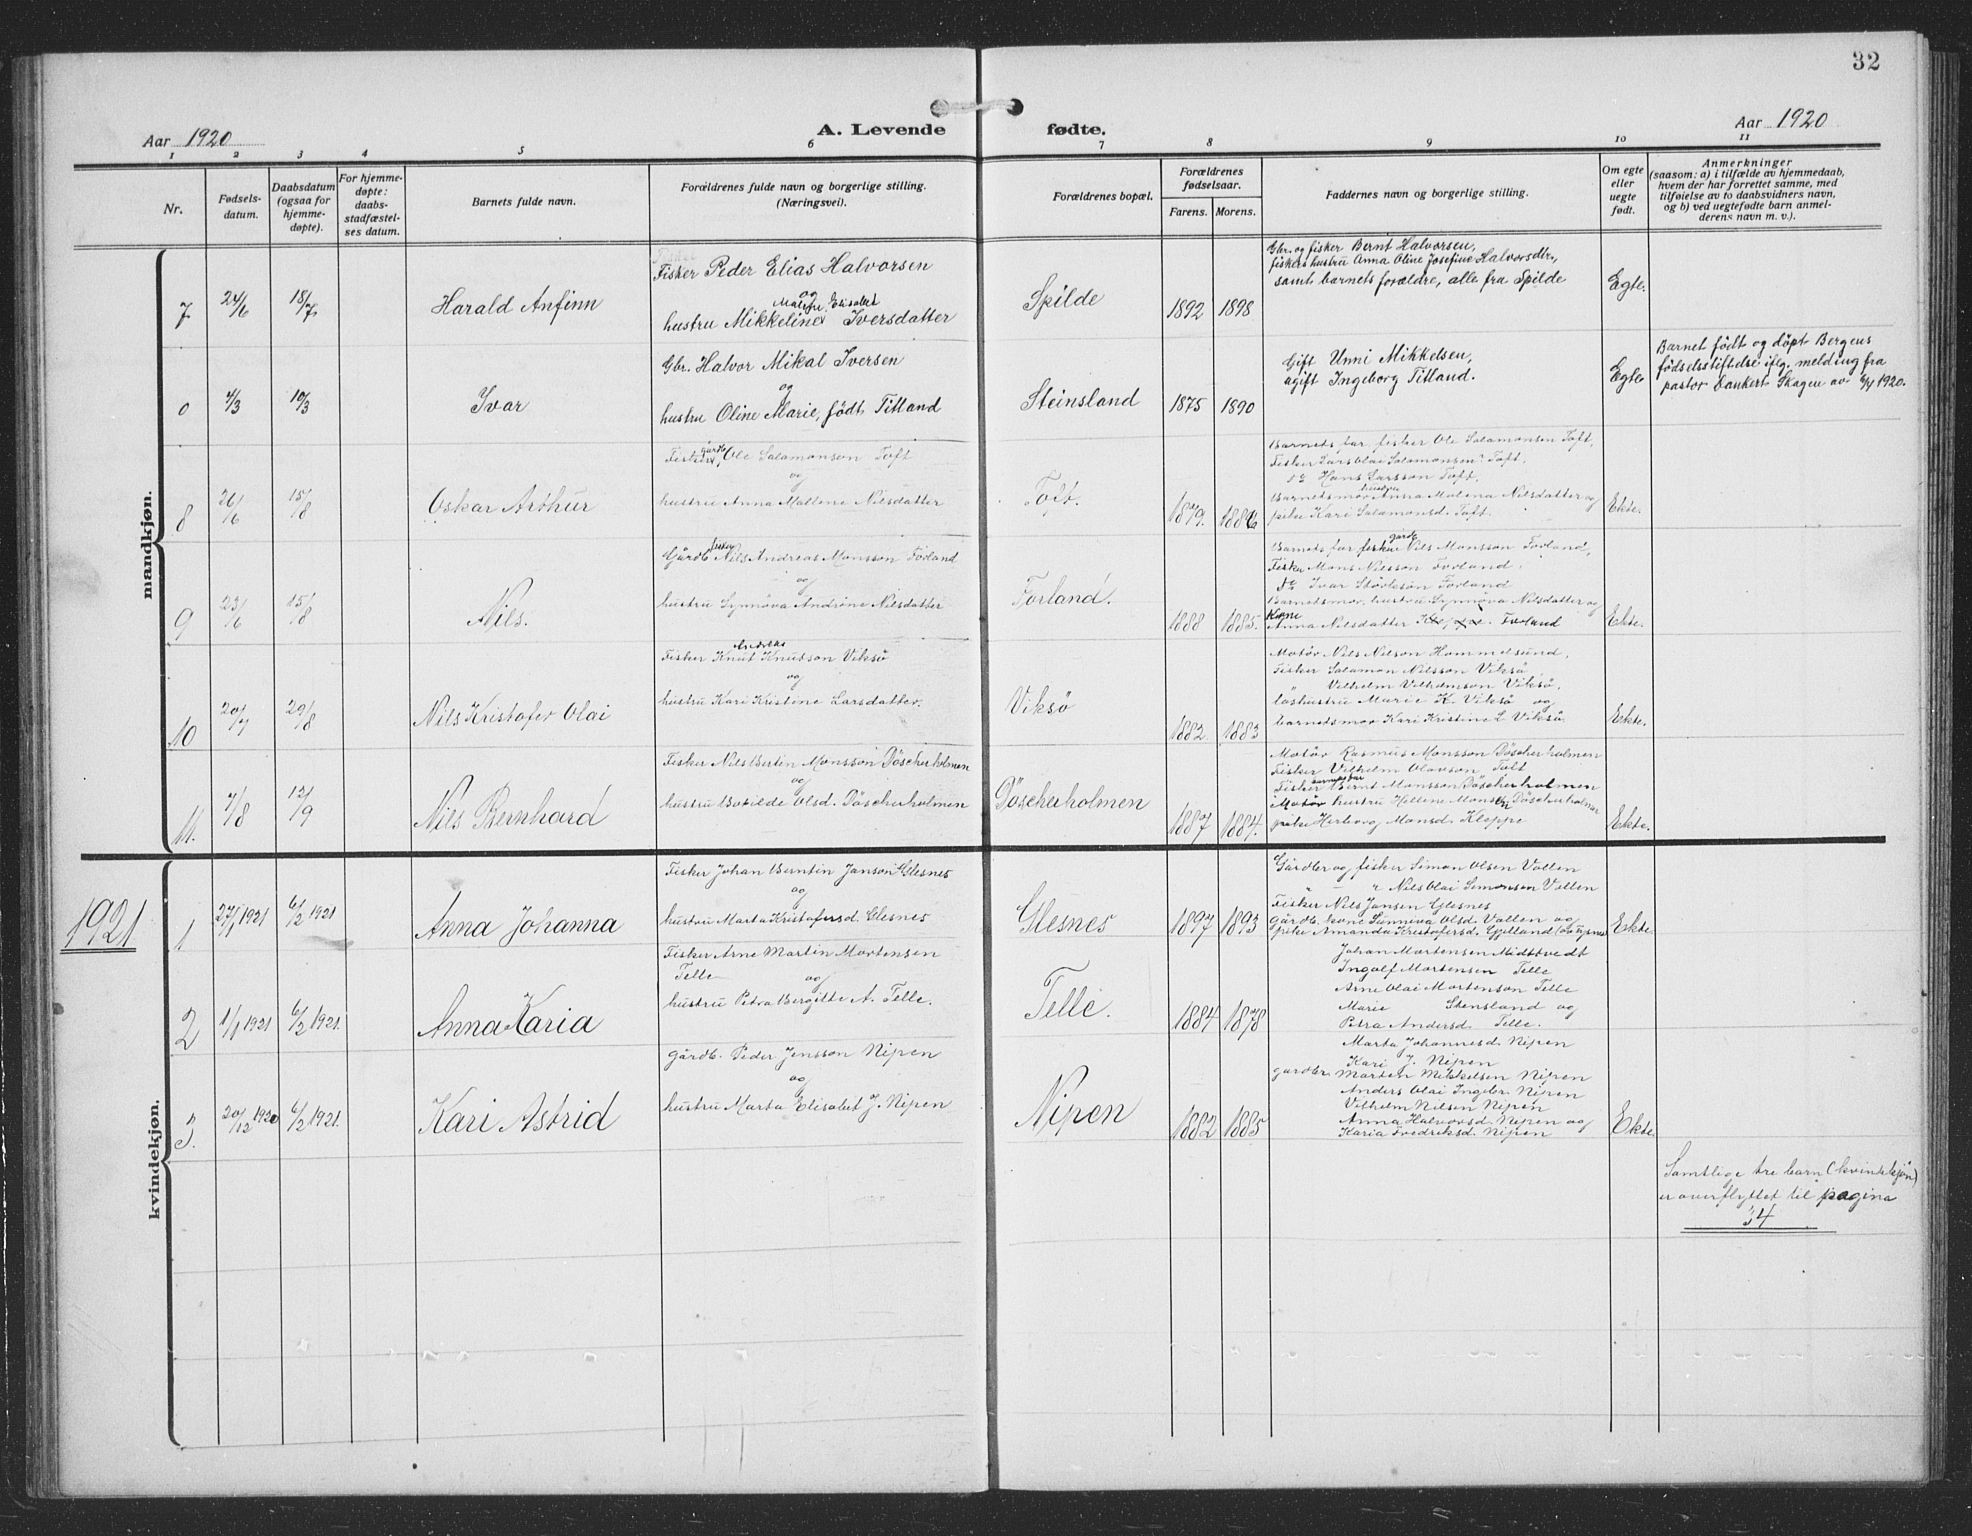 32
Aar 1920
A. Levende fødte.
Aar 1920
1 2 3 4 5 6 7 8 9 10 11
Nr.
Fødsels-
datum.
Daabsdatum
(ogsaa for
hjemme-
døpte).
For hjemme-
døpte:
daabs-
stadfæstel-
ses datum.
Barnets fulde navn.
Forældrenes fulde navn og borgerlige stilling.
(Næringsvei).
Forældrenes bopæl.
Forældrenes
fødselsaar.
Farens. Morens.
Faddernes navn og borgerlige stilling.
Om egte
eller
uegte
født.
Anmerkninger
(saasom: a) i tilfælde av hjemmedaab,
hvem der har forrettet samme, med
tilføielse av to daabsvidners navn,
og b) ved uegtefødte barn anmel-
derens navn m. v.).
mandkjøn.
7 24/6 18/7 Harald Anfinn
Fisker Peder Elias Halvorsen
og
Malene Elisabet
hustru Mikkeline Iversdatter
Spilde 1892 1898
Gbr. og fisker Bernt Halvorsen,
fiskers hustru Anna Oline Josefine Halvorsdtr,
samt barnets forældre, alle fra Spilde
Egte.
0 4/3 10/3 Ivar
Gbr. Halvor Mikal Iversen
og
hustru Oline Marie, født Titland
Steinsland 1875 1890
Gift Unni Mikkelsen,
ugift Ingeborg Titland.
Egte
Barnet født og döpt Bergens
fødselsstiftelse iflg. melding fra
pastor Dankert Skagen av 1920.
8 26/6 15/8 Oskar Arthur
gårdb.
Fisker, Ole Salamonson Toft
og
hustru Anna Mallene Nilsdatter
Toft. 1879. 1886
Barnets far, fisker Ole Salamonsen Toft,
Fisker Lars Olai Salamonsen Toft,
do Hans Larsson Toft.
hustru
Barnets mor Anna Malena Nilsdatter og
pike Kari Salamonsd. Toft.
Ekte.
9 23/6 15/8 Nils.
fisker
Gårdb. Nils Andreas Monsson Forland
og
hustru Synnöva Andrine Nilsdatter
Forland. 1888 1885.
gårdb
Barnets far fisker Nils Monsson Forland,
Fisker Mons Nilsson Forland,
do Ivar Störkson Forland
Barnets mor, hustru Synnöva Nilsdatter og
Kone
Anna Nilsdatter Kleppe. Forland
Ekte.
10 20/7 29/8 Nils Kristofer Olai
Andreas
Fisker Knut Knutson Viksö
og
hustru Kari Kristine Larsdatter.
Viksö 1882. 1883
Motör Nils Nilson Hommelsund,
Fisker Salamon Nilsson Viksö
" Vilhelm Vilhelmson Viksö,
loshustru Marie K. Viksö og
barnets mor Kari Kristine L Viksö.
Ekte.
11. 7/8 12/9 Nils Bernhard
Fisker Nils Bertin Monsson Döscherholmen
og
hustru Botilde Olsd. Döscherholmen
Döscherholmen 1887 1884.
Motör Rasmus Monsson Döscherholmen
Fisker Vilhelm Olavson Toft
barnets far
Fisker Bernt Monsson Döscherholmen
Motör hustru Hellene Monsen Döscherholmen
pike Herborg Monsd. Kleppe
Ekte.
1921
kvindekjøn.
1 27/1 1921 6/2 1921 Anna Johanna
Fisker Johan Berntin Janson Glesnes
og
hustru Marta Kristofersd. Glesnes
Glesnes 1897 1893
Gårdbr og fisker Simon Olsen Vollen
" — " Nils Olai Simonson Vollen
Fisker Nils Jansen Glesnes
gårdb. kone Sunniva Olsd. Vollen og
pike Amanda Kristofersd. Gjelland
Ekte.
2 1/1 1921 6/2 1921. Anna Karia
Fisker Arne Martin Mortensen
Telle og
hustru Petra Bergitte A. Telle.
Telle. 1884 1878
Johan Mortensen Midttvedt
Ingolf Mortensen Telle
Arne Olai Mortenson Telle
Marie Stensland og
Petra Andersd. Telle.
3. 20/12 1920 6/2 1921. Kari Astrid
gårdb. Peder Jensson Nipen
og
hustru Marta Elisabet J. Nipen
Nipen 1882 1885
Marta Johannesd. Nipen
Kari J. Nipen
gardbr. Morten Mikkelsen Nipen
Anders Olai Ingebr. Nipen
Vilhelm Nilsen Nipen
Anna Halvorsd. Nipen og
Karia Fredriksd. Nipen
Ekte.
Samtlige tre barn (kvindekjön)
er overflyttet til pagina
34